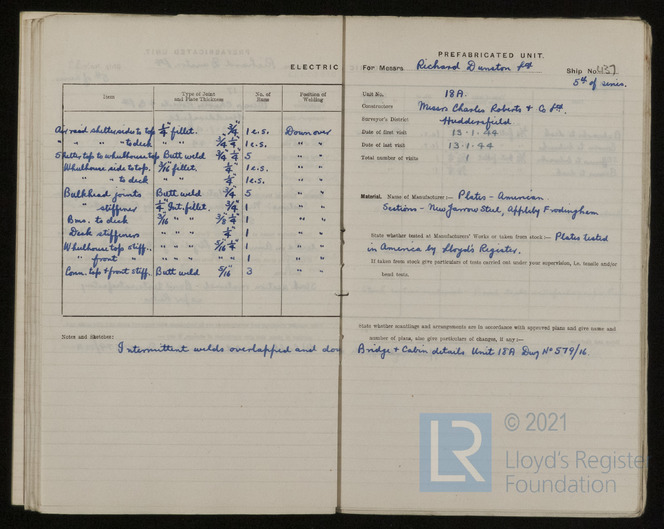 ELECTRIC
Item
Type of Joint and Plate Thickness
No. of Runs
Position of Welding
Air raid shelter side to top 1/4" fillet. 3/4 1 e.s. Downover
" " " " to deck " " 3/4 1/4" 1 e.s. " "
Shelter top to wheelhouse top Butt weld 3/4 1/4" 5 " "
Wheelhouse side to top. 3/16 fillet. 1/4" 1 e.s. " "
" " to deck " " 1/4" 1 e.s. " "
Bulkhead joints Butt weld 3/4" 5 " "
" stiffener 1/4" Int. fillet. 3/4" 1 " "
Bms. to deck 3/16 " " " 3/8 1/4" 1 " "
Deck stiffeners " " " 1/4" 1 " "
Wheelhouse top stiff.. " " " 5/16 1/4" 1 " "
" front " " " " 1 " "
Conn. top & front stiff. Butt weld 5/16 3 " "
Notes and Sketches:
Intermittent welds overlapped and
PREFABRICATED UNIT.
For Messrs. Richard Dunston Ltd. Ship No. 437
5th of series.
Unit No. 18A.
Constructors Messrs Charles Roberts & Co Ltd.
Surveyor's District Huddersfield
Date of first visit 13·1·44
Date of last visit 13·1·44
Total number of visits 1
Material. Name of Manufacturer:— Plates - American
Sections - New Jarrow Steel, Appleby Frodingham
State whether tested at Manufacturers' Works or taken from stock:— Plates tested
in America by Lloyd's Register.
If taken from stock give particulars of tests carried out under your supervision, i.e. tensile and/or
bend tests.
State whether scantlings and arrangements are in accordance with approved plans and give name and
number of plans, also give particulars of changes, if any:—
Bridge & Cabin details Unit 18A Dwg No 579/16.
LR
© 2021
Lloyd's Register
Foundation